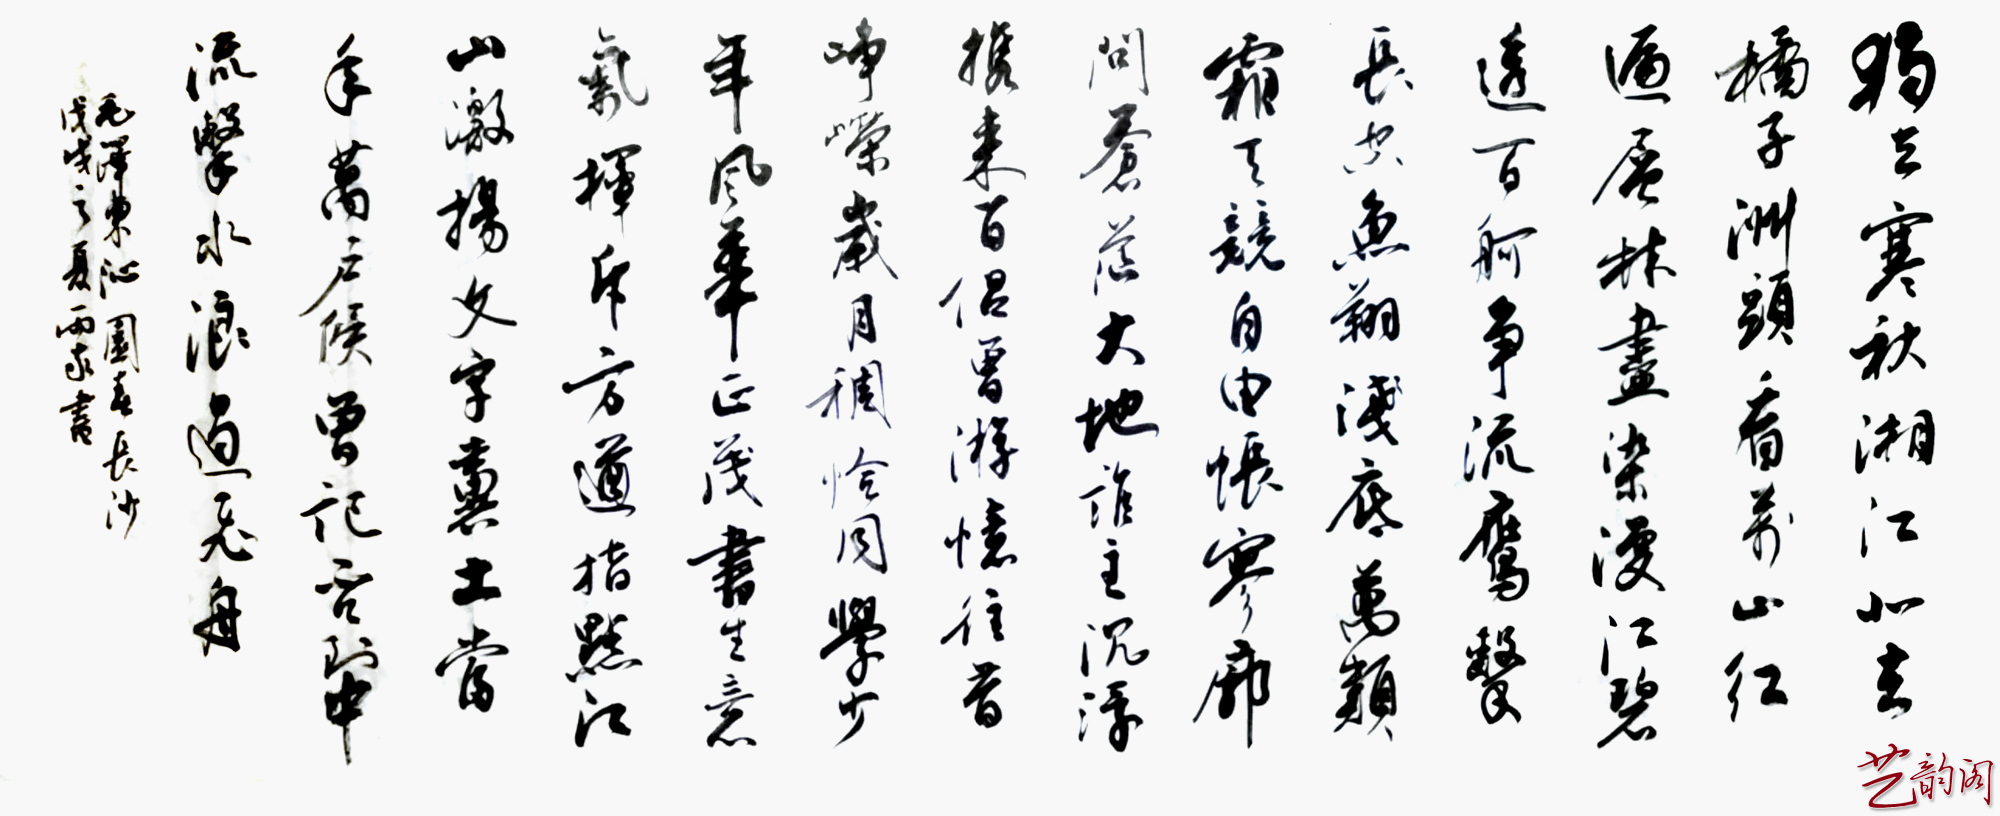 獨立寒秋湘江北去
橘子洲頭看萬山红
遍層林盡染漫江碧
透百舸爭流鷹擊
長空魚翔淺底萬類
霜天競自由悵寥廓
問蒼茫大地誰主沉浮
携來百侣曾游憶往昔
崢嶸歲月稠恰同學少
年風華正茂書生意
氣揮斥方遒指點江
山激揚文字糞土當
年萬户侯曾記否到中
流擊水浪遏飛舟
毛澤東沁園春長沙
戊戌之夏書
艺韵阁